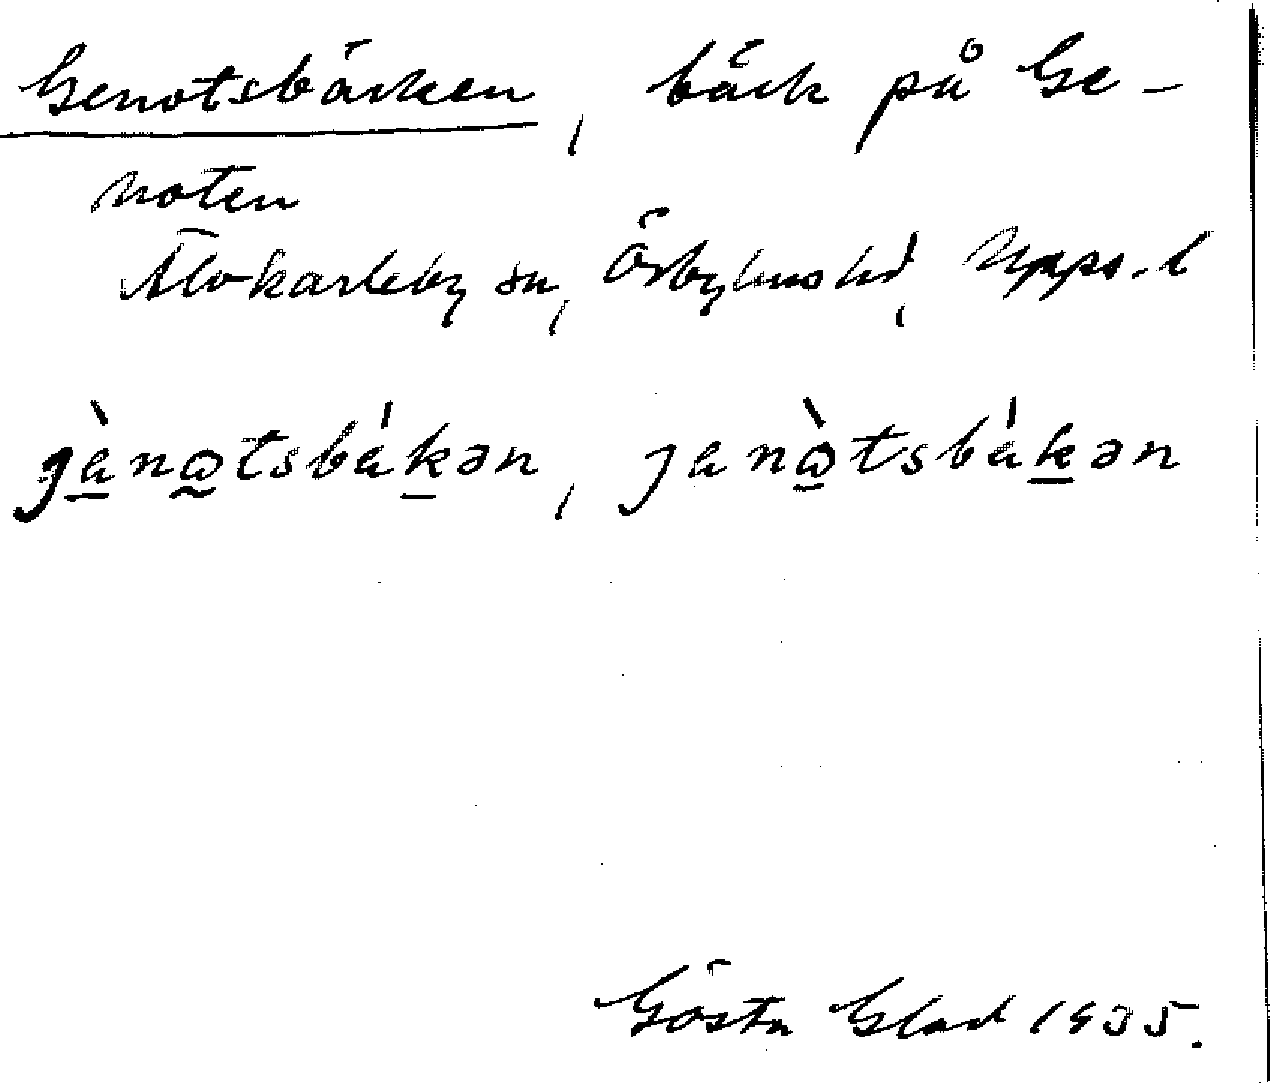 Genotsbäcken, bäck på Ge-
noten
Älvkarleby sn, Örbyhus hd, Upps. l
jὰnω̰tsbákən, janὼtsbákən
Gösta Glad 1935.